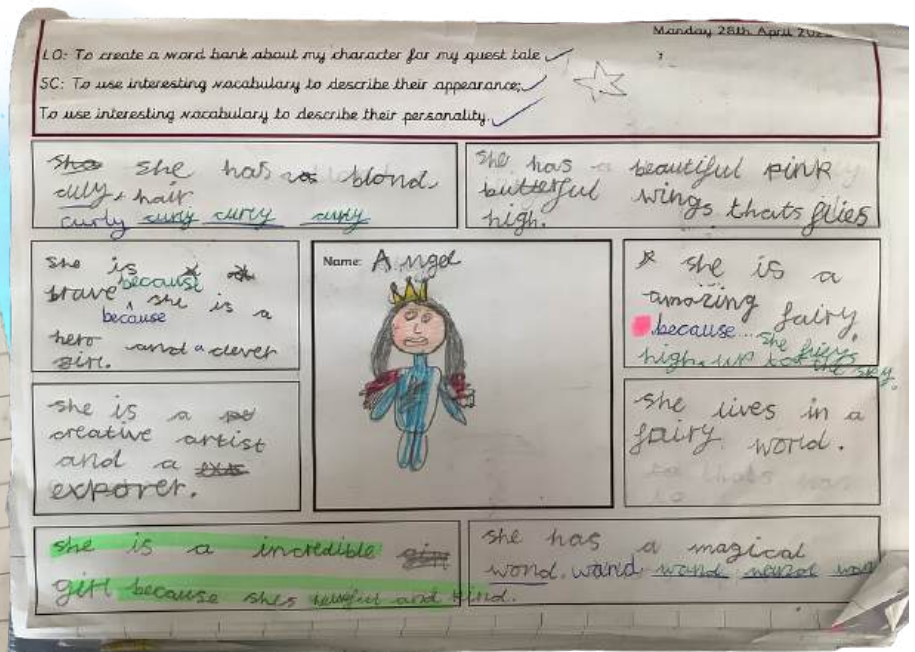 Manday 28th April
LO: To create a word bank about my character for my quest tale
SC: To use interesting vocabulary to describe their appearance;
To use interesting vocabulary to describe their personality.
she has blond
culy, hair
curly curly curly curly
she has a beautiful pink
butterful wings thats flies
high.
she is
brave because
because she is a
hero and a clever
girl.
Name: Angel
she is a
amazing fairy.
because... she
high up to the sky.
she is a
creative artist
and a
exporer.
she lives in a
fairy world.
she is a incredible
girl because shes helpful and kind.
she has a magical
wond. wand wand wand